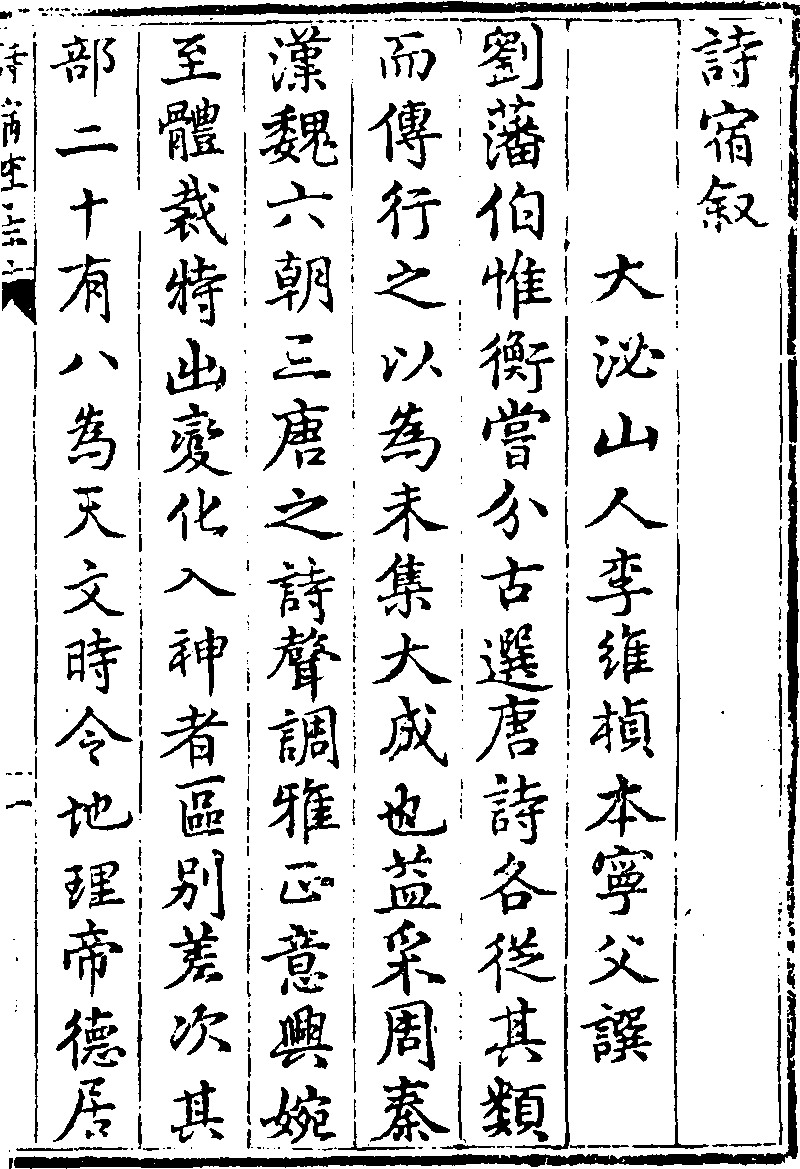 詩宿叙
大泌山人李維楨本寧父譔
劉藩伯惟衡嘗分古選唐詩各從其類
而傳行之以為未集大成也益采周秦
漢魏六朝三唐之詩聲調雅正意興婉
至體裁特出變化入神者區別差次其
部二十有八為天文時令地理帝德居
一